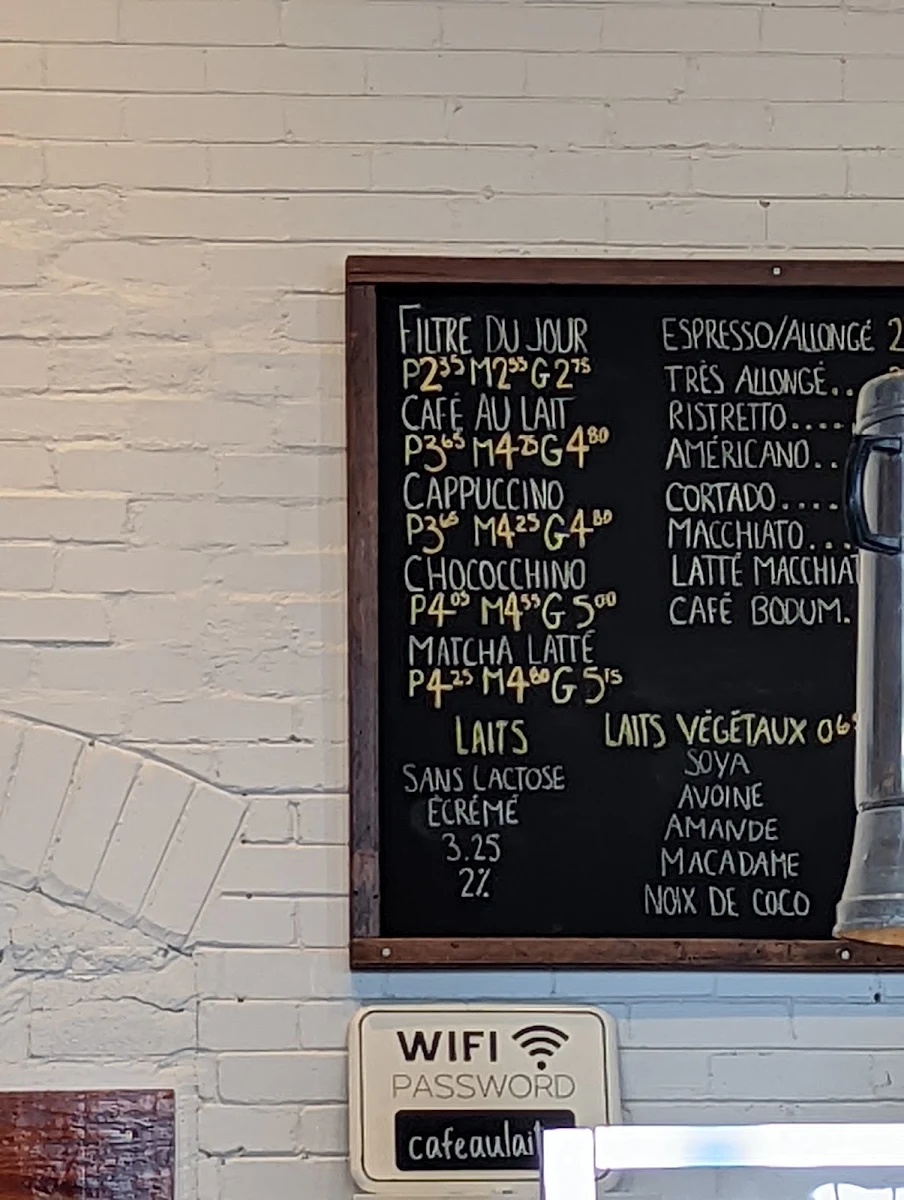 FILTRE DU JOUR
P2³⁵ M2⁵⁵ G2⁷⁵
CAFÉ AU LAIT
P3⁶⁵ M4²⁵ G4⁸⁰
CAPPUCCINO
P3⁶⁵ M4²⁵ G4⁸⁰
CHOCOCCHINO
P4⁰⁵ M4⁵⁵ G5⁰⁰
MATCHA LATTÉ
P4²⁵ M4⁸⁰ G5¹⁵
LAITS
SANS LACTOSE
ÉCRÉMÉ
3.25
2%
ESPRESSO/ALLONGÉ 2
TRÈS ALLONGÉ...
RISTRETTO....
AMÉRICANO..
CORTADO....
MACCHIATO...
LATTÉ MACCHIAT
CAFÉ BODUM.
LAITS VÉGÉTAUX 0
SOYA
AVOINE
AMANDE
MACADAME
NOIX DE COCO
WIFI
PASSWORD
cafeaulait